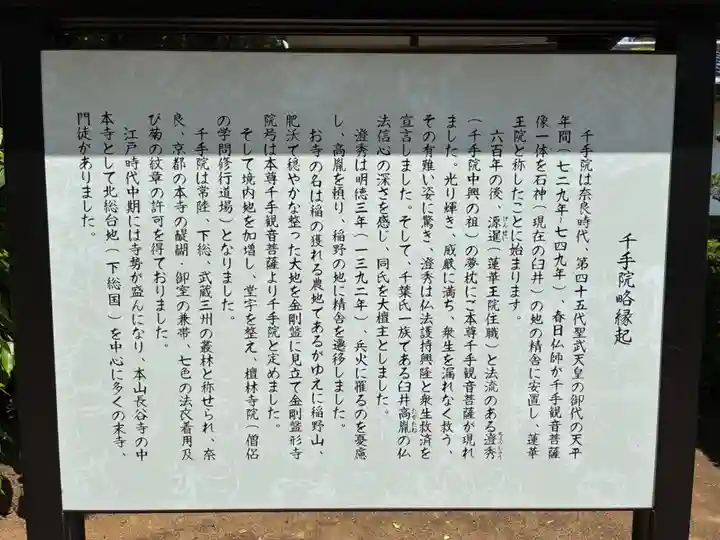 千手院略縁起
千手院は奈良時代、第四十五代聖武天皇の御代の天平
年間（七二九年~七四九年）、春日仏師が千手観音菩薩
像一体を石神（現在の臼井）の地の精舎に安置し、蓮華
王院と称したことに始まります。
六百年の後、源暹（蓮華王院住職）と法流のある澄秀
（千手院中興の祖）の夢枕にご本尊千手観音菩薩が現れ
ました。光り輝き、威厳に満ち、衆生を漏れなく救う、
その有難い姿に驚き、澄秀は仏法護持興隆と衆生救済を
宣言しました。そして、千葉氏一族である臼井高胤の仏
法信心の深さを感じ、同氏を大檀主としました。
澄秀は明徳三年（一三九二年）、兵火に罹るのを憂慮
し、高胤を頼り、稲野の地に精舎を遷移しました。
お寺の名は稲の獲れる農地であるがゆえに稲野山、
肥沃で穏やかな整った大地を金剛盤に見立て金剛盤形寺
院号は本尊千手観音菩薩より千手院と定めました。
そして境内地を加増し、堂宇を整え、檀林寺院（僧侶
の学問修行道場）となりました。
千手院は常陸、下総、武蔵三州の叢林と称せられ、奈
良、京都の本寺の醍醐、御室の兼帯、七色の法衣着用及
び菊の紋章の許可を得ておりました。
江戸時代中期には寺勢が盛んになり、本山長谷寺の中
本寺として北総台地（下総国）を中心に多くの末寺、
門徒がありました。